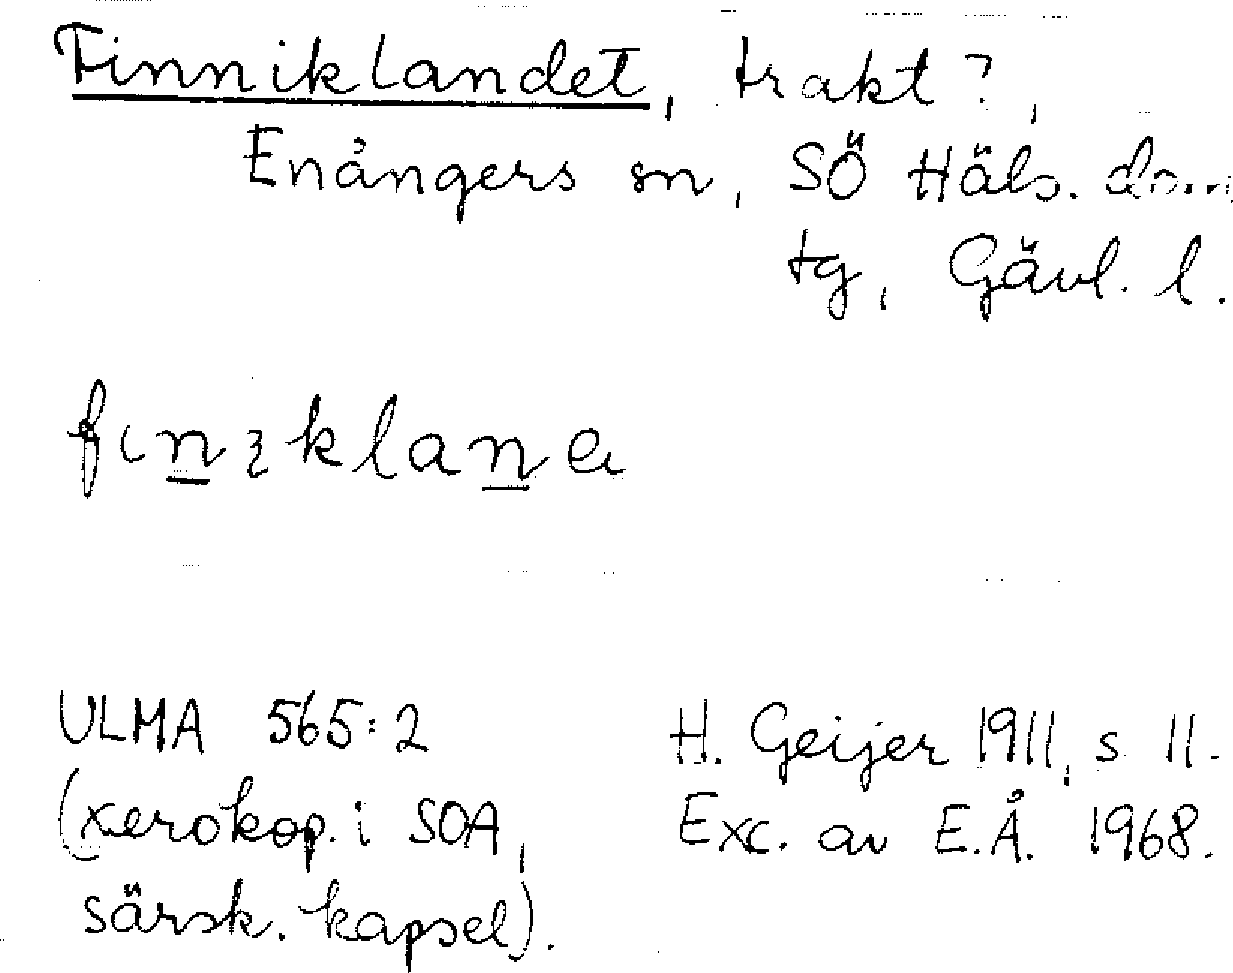 Finniklandet, trakt?,
Enångers sn, SÖ Häls. dom.
tg, Gävl. l.
fɩnɜklanɐ
ULMA 565:2
(xerokop. i SOA,
särsk. kapsel).
H. Geijer 1911, s 11.
Exc. av E.Å. 1968.